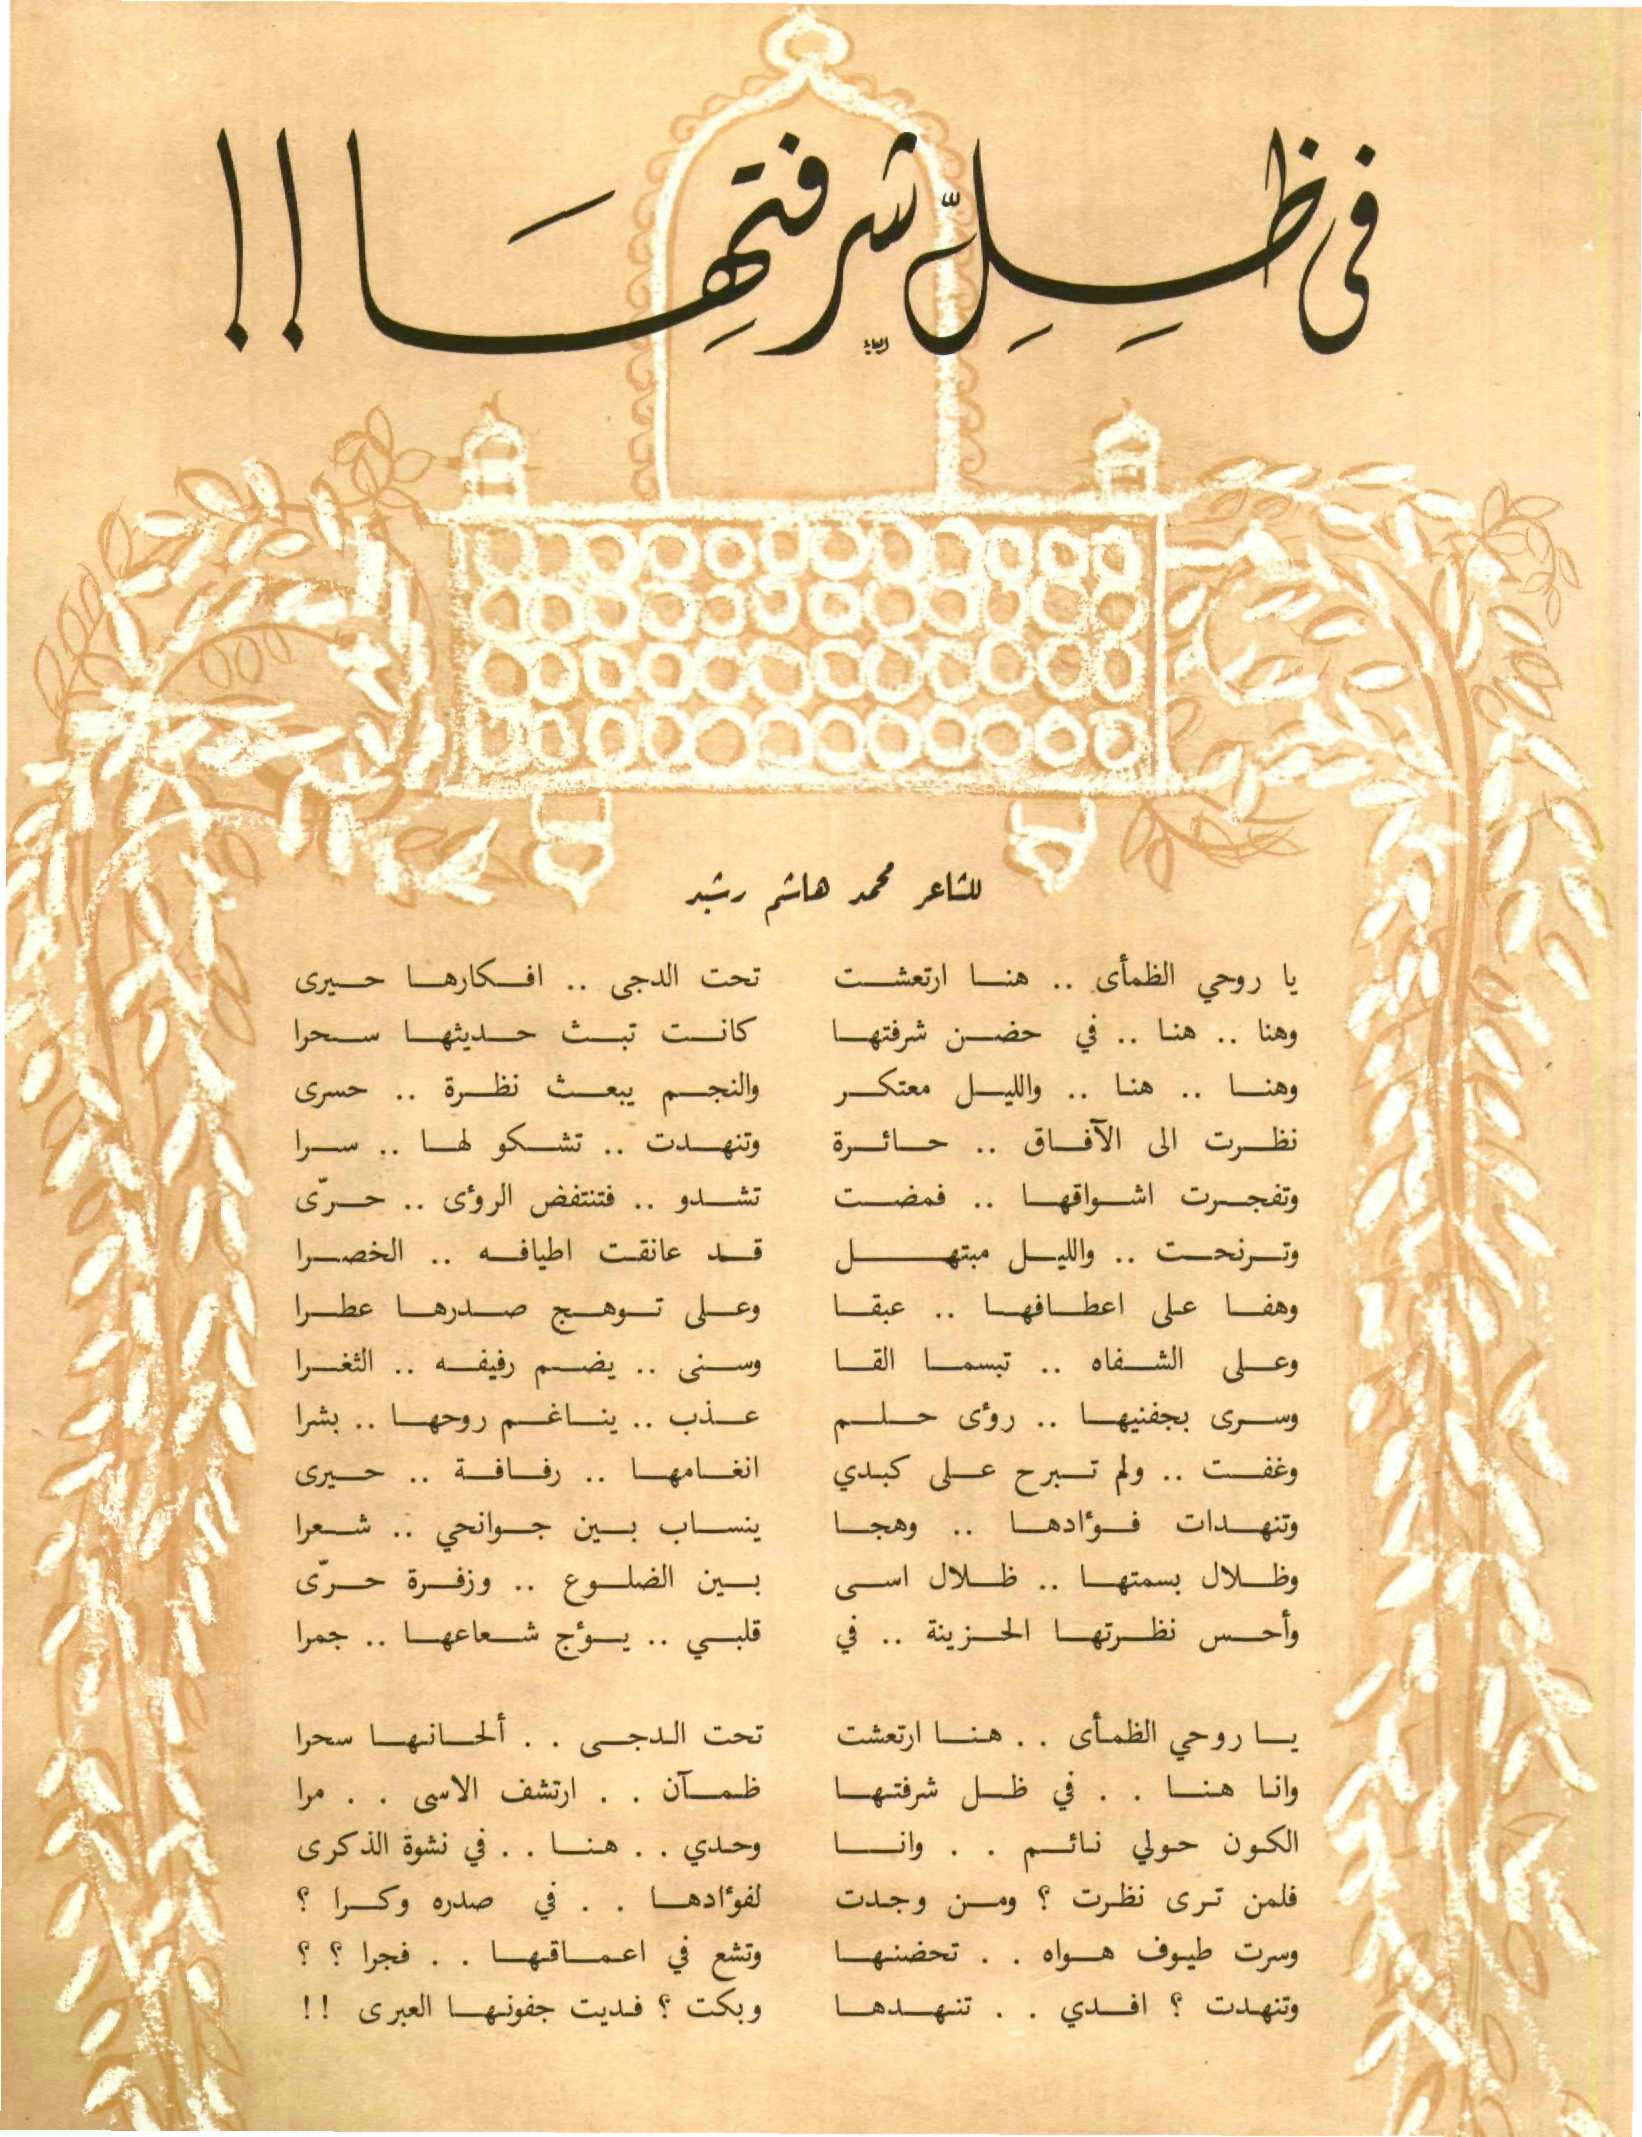 في ظلّ شرفتها !!
للشاعر محمد هاشم رشيد
يا روحي الظمأى .. هنا ارتعشت تحت الدجى .. افكارها حيرى
وهنا .. هنا .. في حضن شرفتها كانت تبث حديثها سحرا
وهنا .. هنا .. والليل معتكر والنجم يبعث نظرة .. حسرى
نظرت الى الآفاق .. حائرة وتنهدت .. تشكو لها .. سرا
وتفجرت اشواقها .. فمضت تشدو .. فتنتفض الرؤى .. حرّى
وترنحت .. والليل مبتهل قد عانقت اطيافه .. الخصرا
وهفا على اعطافها .. عبقا وعلى توهج صدرها عطرا
وعلى الشفاه .. تبسما القا وسنى .. يضم رفيفه .. الثغرا
وسرى بجفنيها .. رؤى حلم عذب .. يناغم روحها .. بشرا
وغفت .. ولم تبرح على كبدي انغامها .. رفافة .. حيرى
وتنهدات فؤادها .. وهجا ينساب بين جوانحي .. شعرا
وظلال بسمتها .. ظلال اسى بين الضلوع .. وزفرة حرّى
وأحس نظرتها الحزينة .. في قلبي .. يؤج شعاعها .. جمرا
يا روحي الظمأى .. هنا ارتعشت تحت الدجى .. ألحانها سحرا
وانا هنا .. في ظل شرفتها ظمآن .. ارتشف الاسى .. مرا
الكون حولي نائم .. وانا وحدي .. هنا .. في نشوة الذكرى
فلمن ترى نظرت ؟ ومن وجدت لفؤادها .. في صدره وكرا ؟
وسرت طيوف هواه .. تحضنها وتشع في اعماقها .. فجرا ؟ ؟
وتنهدت ؟ افدي .. تنهدها وبكت ؟ فديت جفونها العبرى !!